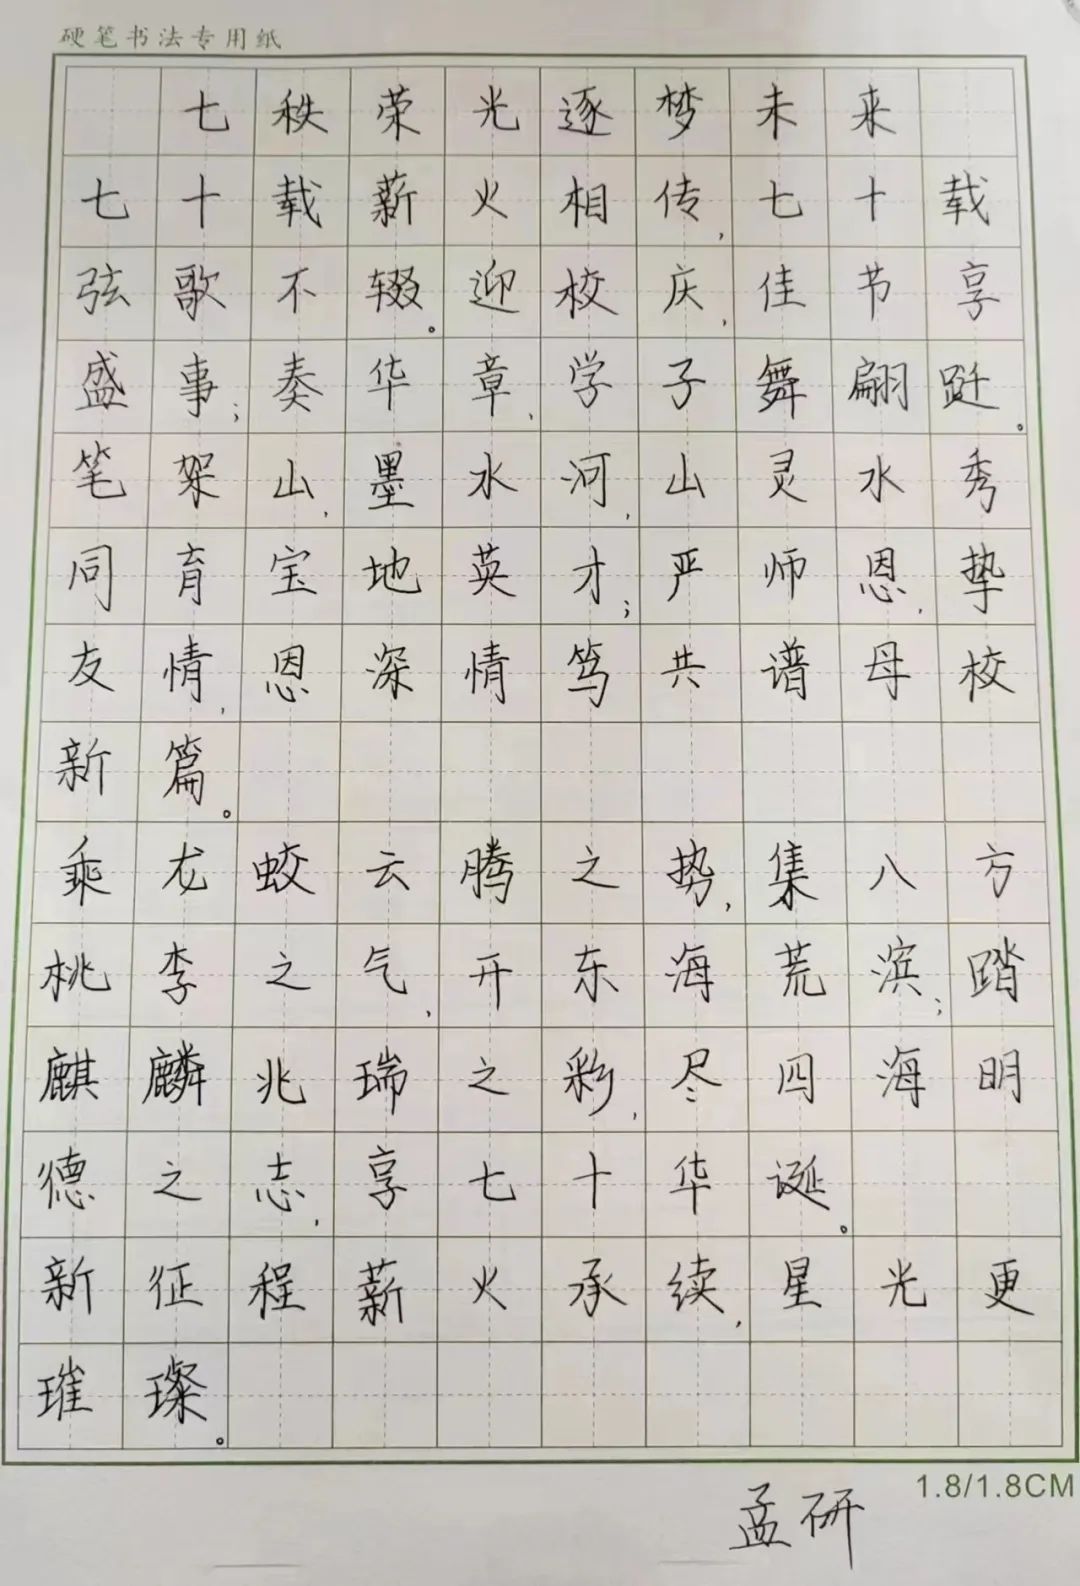 硬笔书法专用纸
七秩荣光逐梦未来
七十载薪火相传,七十载
弦歌不辍。迎校庆,佳节享
盛事;奏华章,学子舞翩跹。
笔架山,墨水河,山灵水秀
同育宝地英才;严师恩,挚
友情,恩深情笃共谱母校
新篇。
乘龙蛟云腾之势,集八方
桃李之气,开东海荒滨;踏
麒麟兆瑞之彩,尽四海明
德之志,享七十华诞。
新征程薪火承续,星光更
璀璨。
1.8/1.8CM
孟研